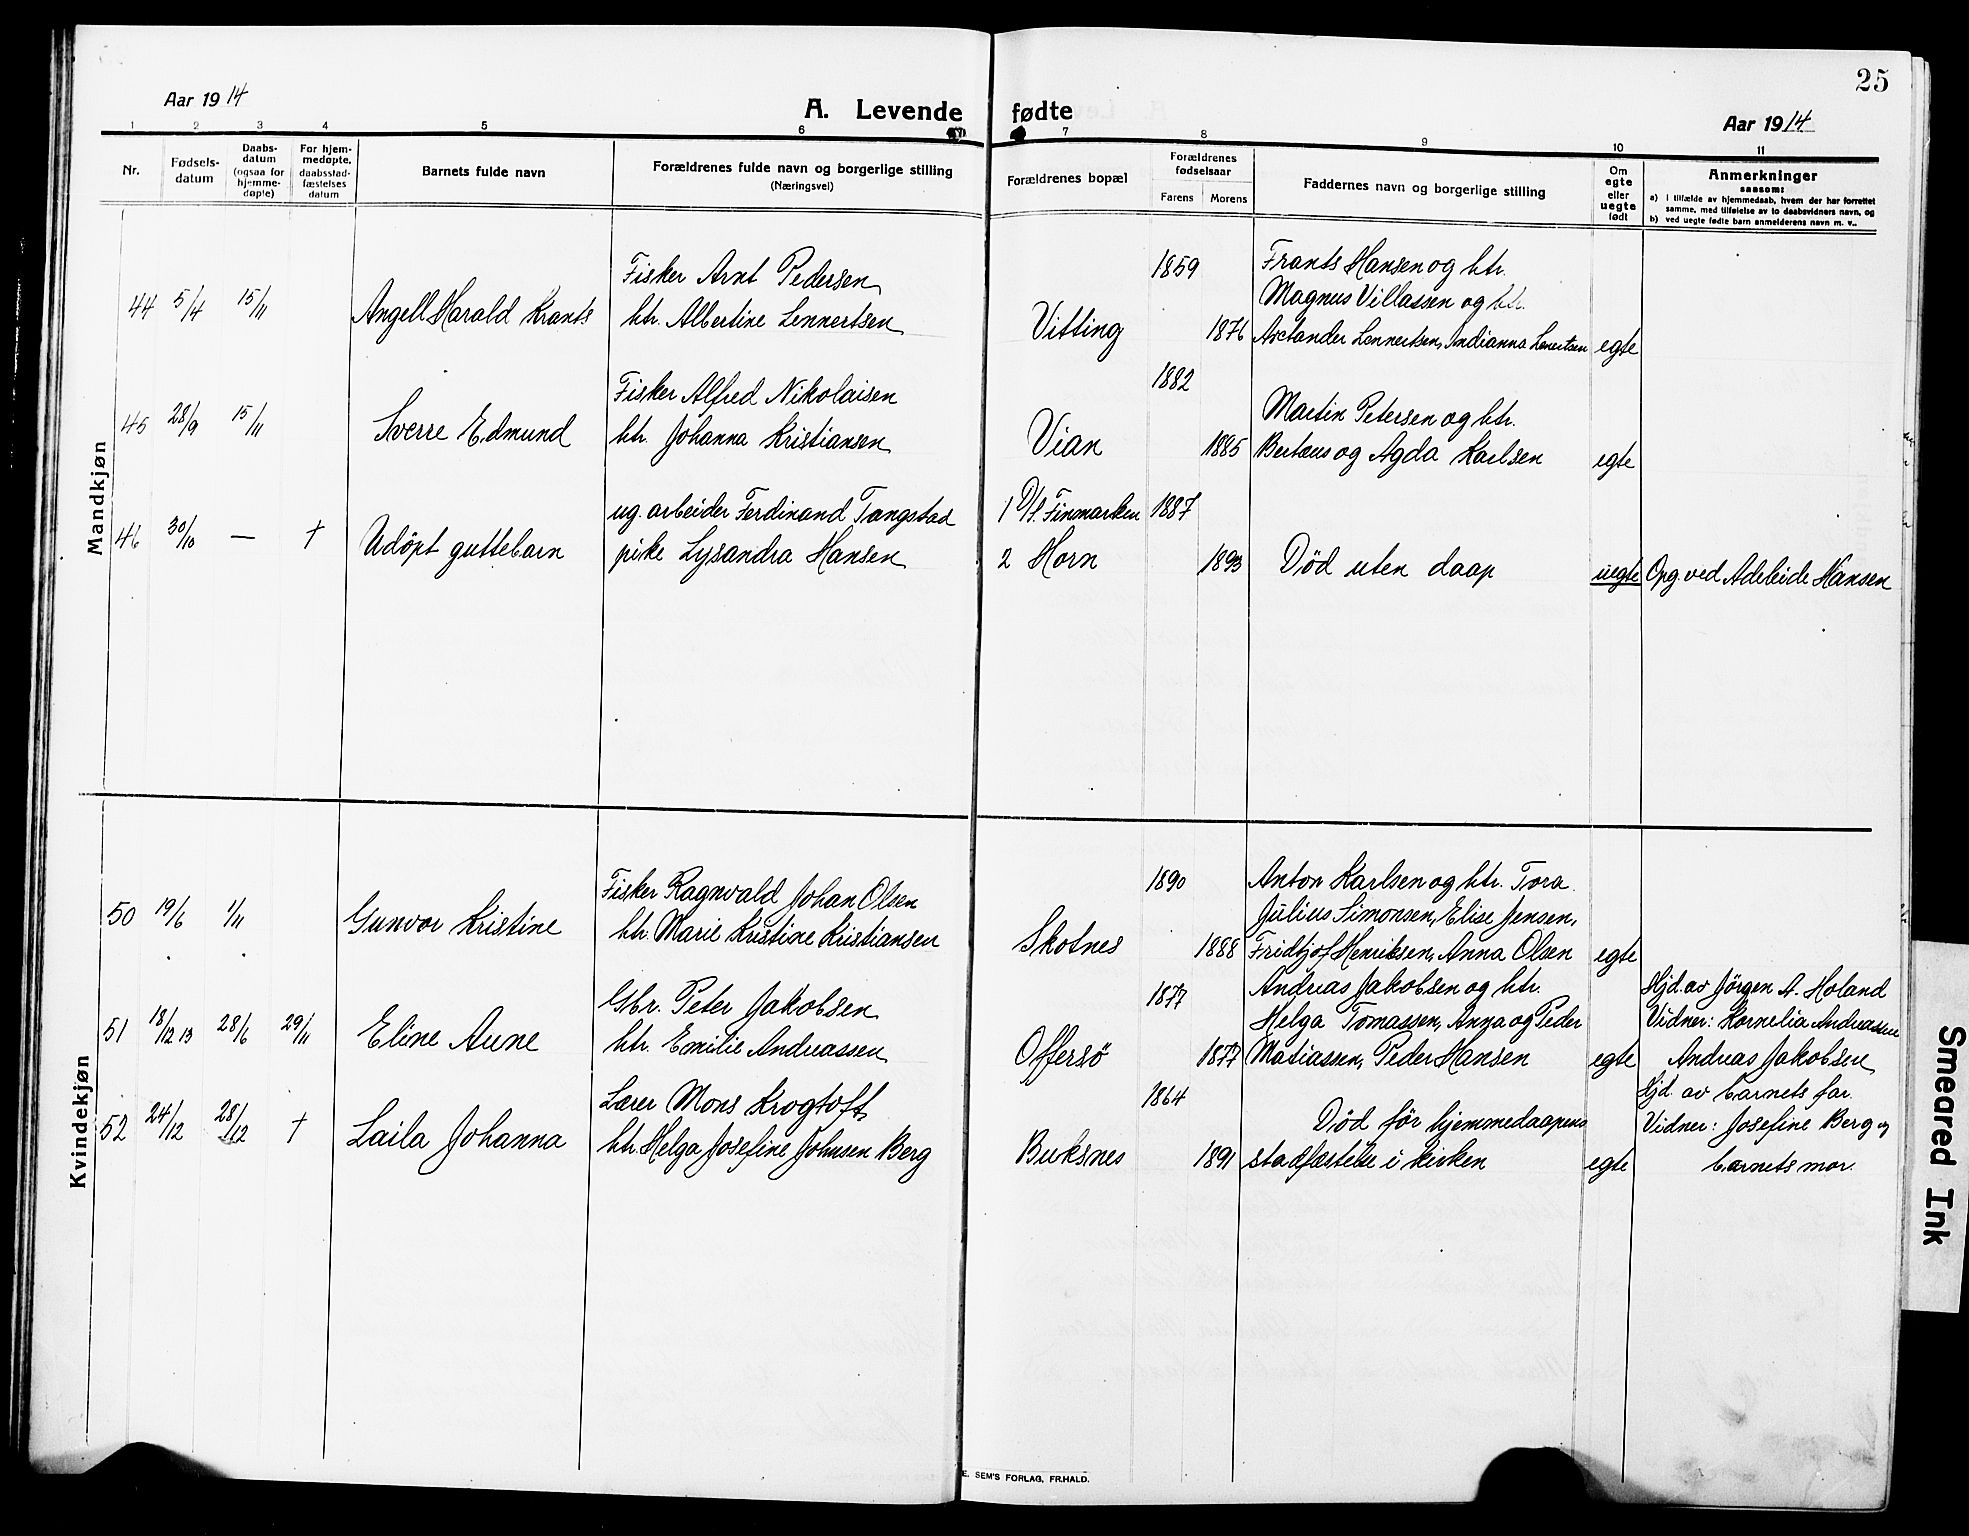 25
Aar 1914
A. Levende fødte
Aar 1914
1 2 3 4 5 6 7 8 9 10 11
Nr.
Fødsels-
datum
Daabs-
datum
(ogsaa for
hjemme-
døpte)
For hjem-
medøpte,
daabsstad-
fæstelses
datum
Barnets fulde navn
Forældrenes fulde navn og borgerlige stilling
(Næringsvei)
Forældrenes bopæl
Forældrenes
fødselsaar
Farens Morens
Faddernes navn og borgerlige stilling
Om
egte
eller
uegte
født
Anmerkninger
saasom:
a) i tilfælde av hjemmedaab, hvem der har forrettet
samme, med tilføielse av to daabsvidners navn, og
b) ved uegte fødte barn anmelderens navn m. v..
Mandkjøn
44 5/4 15/11 Angell Harald Krants
Fisker Arnt Pedersen
htr. Albertine Lennertsen
Vitting
1859
1876
Frants Hansen og htr.
Magnus Villassen og htr.
Arctander Lennertsen, Indianna Lenertsen
egte
45 28/9 15/11 Sverre Edmund
Fisker Alfred Nikolaisen
htr. Johanna Kristiansen
Vian
1882
1885
Martin Petersen og htr.
Bertæus og Agda Karlsen
egte
46 30/10 — † Udöpt guttebarn
ug. arbeider Ferdinand Tangstad
pike Lysandra Hansen
1 V/S. Finmarken
2 Horn
1887
1893
Död uten daap
uegte
Opg. ved Adeleide Hansen
Kvindekjøn
50 19/6 1/11 Gunvor Kristine
Fisker Ragnvald Johan Olsen
htr. Marie Kristine Kristiansen
Skotnes
1890
1888
Anton Karlsen og htr. Tora
Julius Simonsen, Elise Jensen,
Fridtjof Henriksen, Anna Olsen
egte
51 18/12 13 28/6 29/11 Eline Aune
Gbr. Peter Jakobsen
htr. Emilie Andreassen
Offersö
1877
1877
Andreas Jakobsen og htr.
Helga Tomassen, Anna og Peder
Matiassen, Peder Hansen
egte
Hjd. av Jörgen A. Holand
Vidner: Kornelia Andreassen
Andreas Jakobsen
52 24/12 28/12 † Laila Johanna
Lærer Mons Krogtoft
htr. Helga Josefine Johnsen Berg
Buksnes
1864
1891
Död för hjemmedaapens
stadfæstelse i kirken
egte
Hjd. av barnets far.
Vidner: Josefine Berg og
barnets mor.
E. SEM'S FORLAG, FR.HALD.
Smeared Ink